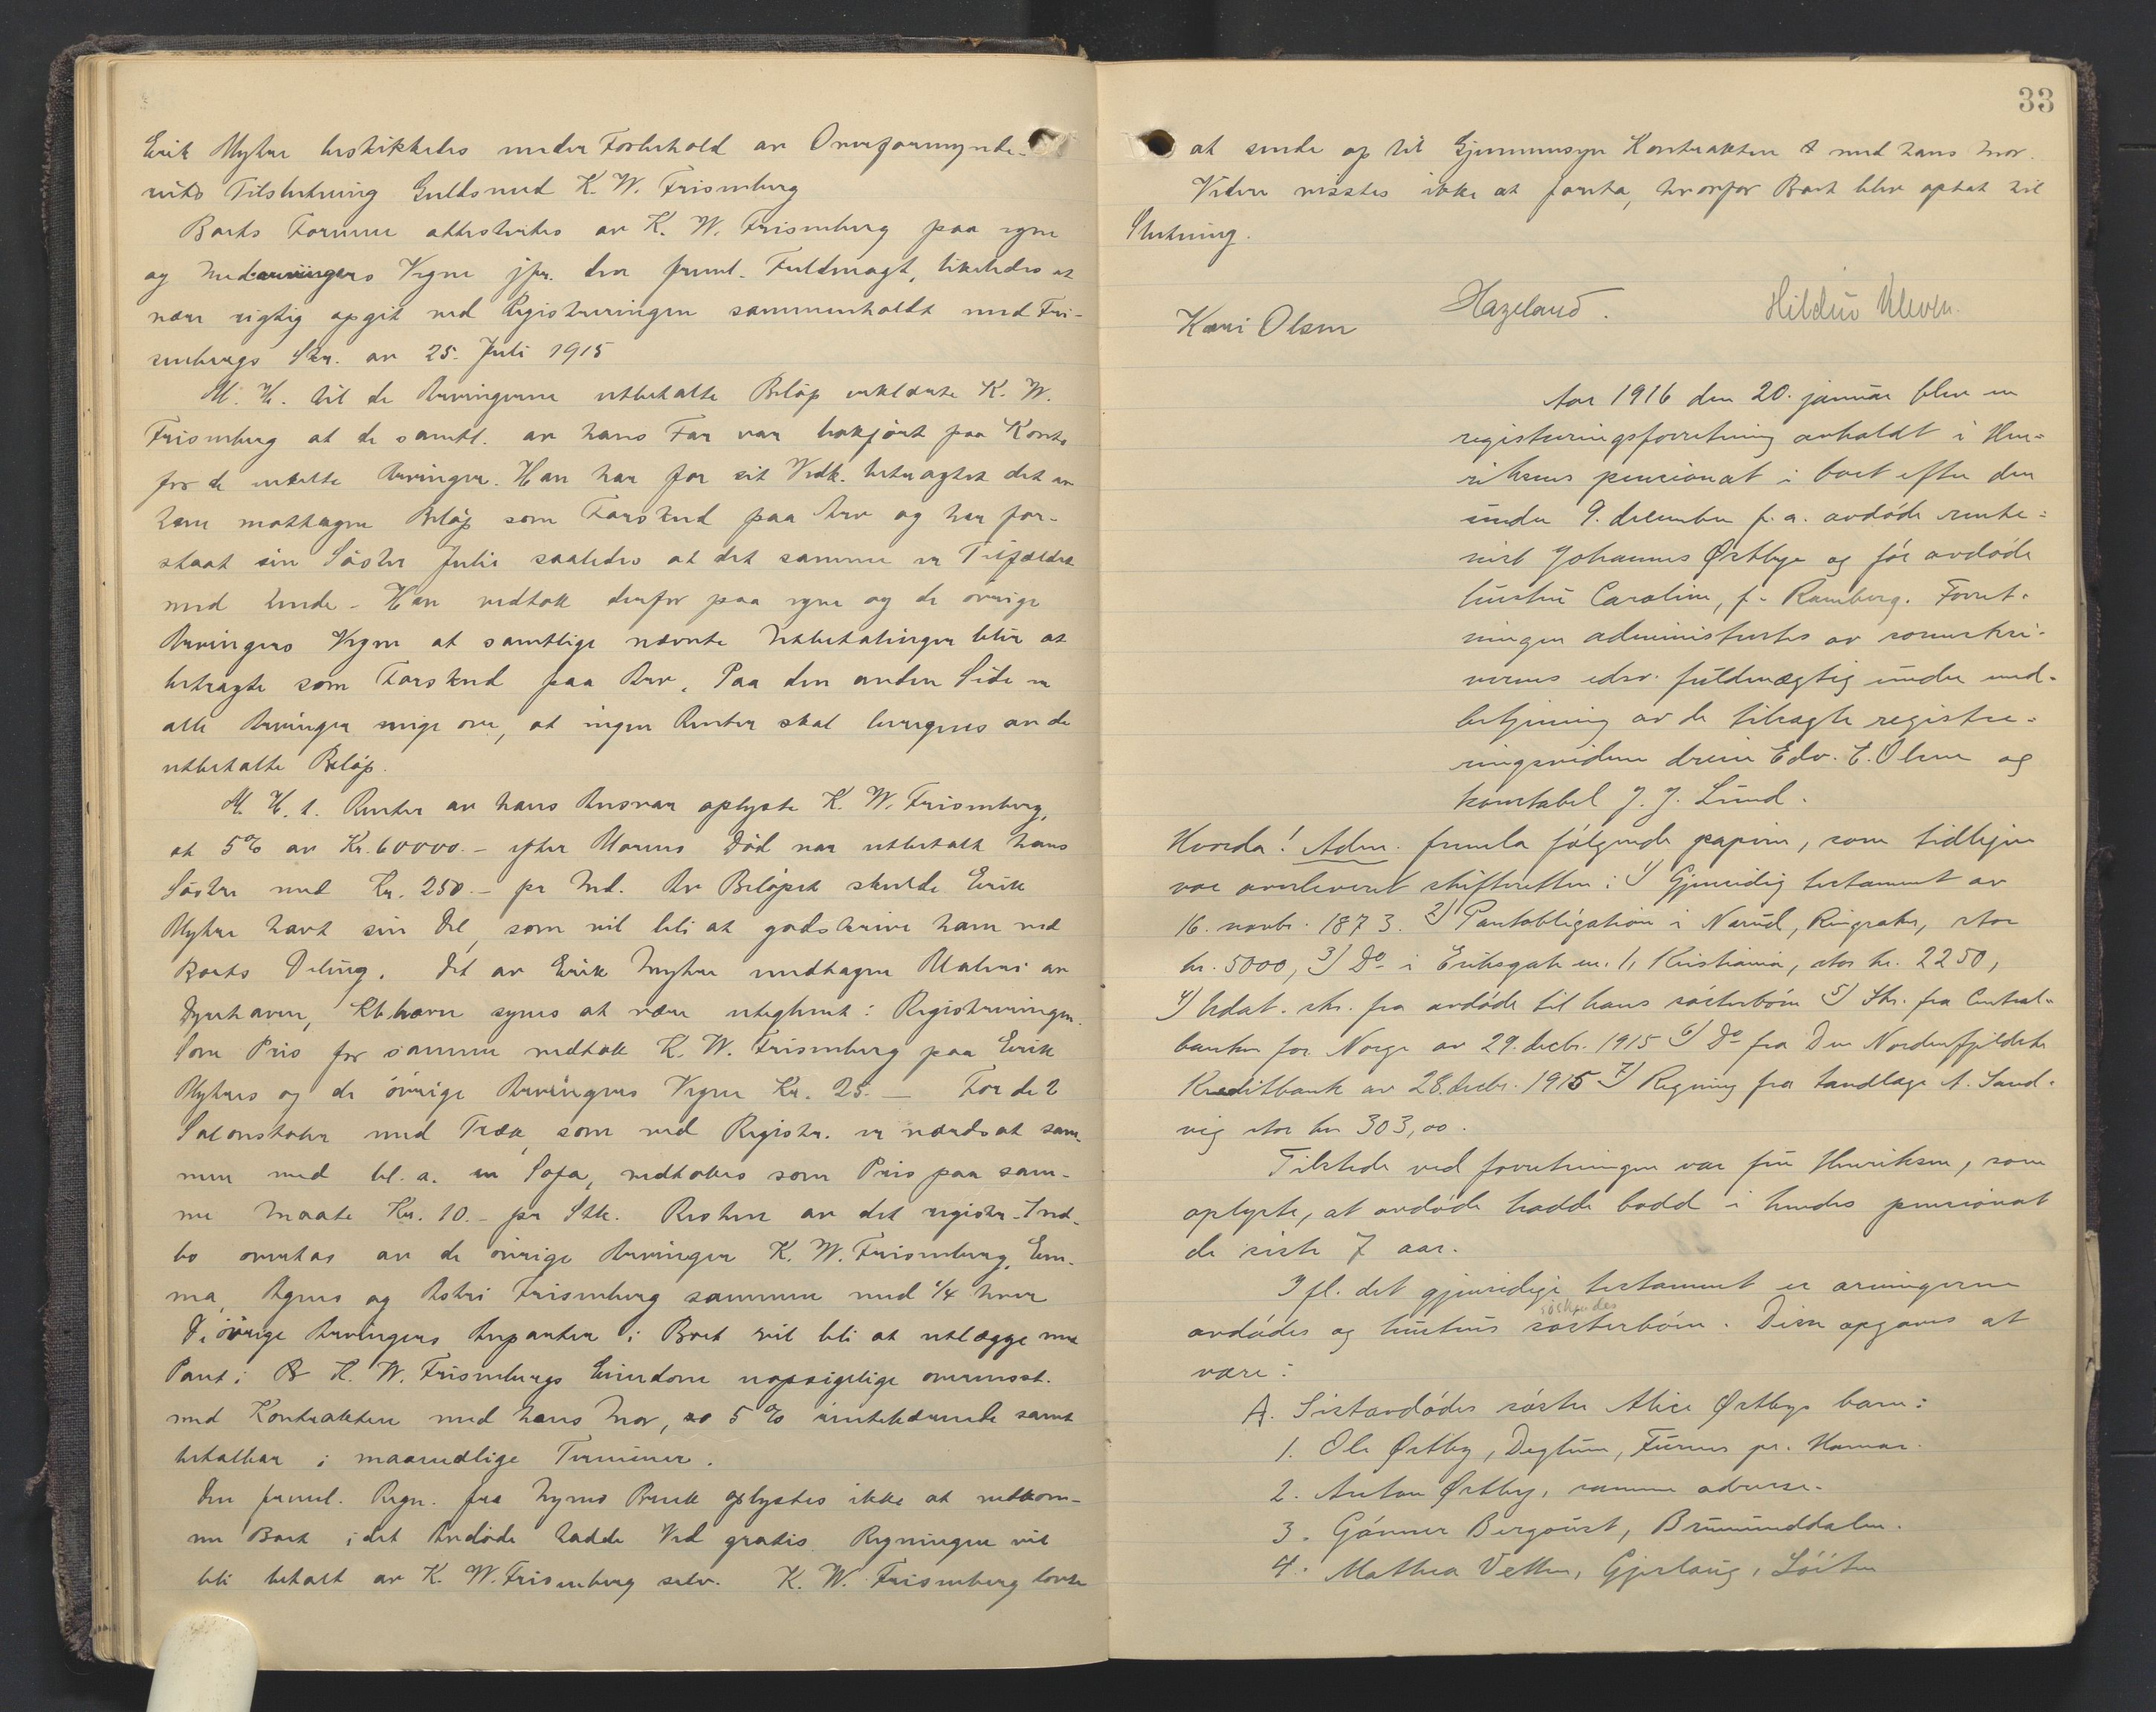 Erik Myhre beskikkedes under Forbehold av Overformynde-
riets Tilslutning Guldsmed K. W. Frisenberg
Boets Formue attesteredes av K. W. Frisenberg paa egne
og Medarvingers Vegne jfr. den freml. Fuldmagt, likeledes at
være rigtig opgit ved Registreringen sammenholdt med Fri-
senbergs Skr. av 25. Juli 1915
M. H. til de Arvingerne utbetalte Beløp erklærte K. W.
Frisenberg at de samtl. av hans Far var bokført paa Konto
for de enkelte Arvinger. Han har for sit Vedk. betragtet det av
ham mottagne Beløp som Forskud paa Arv og har for-
staat sin Søster Julie saaledes at det samme er Tilfældet
med hende. Han vedtok derfor paa egne og de øvrige
Arvingers Vegne at samtlige nævnte Utbetalinger blir at
betragte som Forskud paa Arv. Paa den anden Side er
alle Arvinger enige om, at ingen Renter skal beregnes av de
utbetalte Beløp.
M. H. t. Renter av hans Ansvar oplyste K. W. Frisenberg,
at 5% av Kr. 60000.- efter Morens Død var utbetalt hans
Søstre med Kr. 250.- pr Md. Av Beløpet skulde Erik
Myhre havt sin Del, som vil bli at godskrive ham ved
Boets Deling. Det av Erik Myhre mottagne Maleri av
Dyrehaven, Kbhavn synes at være uteglemt i Registreringen.
Som Pris for samme vedtok K. W. Frisenberg paa Erik
Myhres og de øvrige Arvingers Vegne Kr. 25.- For de 2
Salonstoler med Træk, som ved Registr. er værdsat sam-
men med bl. a. en Sofa, vedtokes som Pris paa sam-
me Maate Kr. 10.- pr Stk. Resten av det registr. Ind-
bo overtas av de øvrige Arvinger K. W. Frisenberg, Em-
ma, Agnes og Astri Frisenberg sammen med 1/4 hver
De øvrige Arvingers Arvparter i Boet vil bli at utlægge med
Pant i K. W. Frisenbergs Eiendom uopsigelige overensst.
med Kontrakten med hans Mor, 5% rentebærende samt
betalbar i maanedlige Terminer.
Den freml. Regn. fra Brænk oplystes ikke at vedkom-
me Boet idet Avdøde hadde Ved gratis. Regningen vil
bli betalt av K. W. Frisenberg selv. K. W. Frisenberg lovte
33
at sende op til Gjennemsyn Kontrakten med hans Mor.
Videre visstes ikke at foreta, hvorfor Boet blev optat til
Slutning.
Kari Olsen Hazeland. Hildur Kleven.
Aar 1916 den 20. januar blev en
registreringsforretning avholdt i Hen-
riksens pensionat i boet efter den
under 9. december f. a. avdøde rente-
nist Johannes Østbye og før avdøde
hustru Caroline, f. Ramberg. Forret-
ningen administrertes av sorenskri-
verens edsv. fuldmægtig under med-
betjening av de tilsagte registre-
ringsvidner dreier Edv. E. Olsen og
konstabel J. J. Lund.
Hvorda! Adm. fremla følgende papirer, som tidligere
var avleveret skifteretten: 1) Gjensidig testament av
16. novbr. 1873. 2) Pantobligation i Narud, Ringsaker, stor
kr. 5000, 3) Do i Eriksgate nr. 1, Kristiania, stor kr. 2250,
4) Udat. skr. fra avdøde til hans søsterbørn 5) Skr. fra Central-
banken for Norge av 29. decbr. 1915 6) Do fra Den Nordenfjeldske
Kreditbank av 28. decbr. 1915 7) Regning fra tandlæge A. Sand-
vig stor kr 303,00.
Tilstede ved forretningen var fru Henriksen, som
oplyste, at avdøde hadde bodd i hendes pensionat
de siste 7 aar.
Ifl. det gjensidige testament er arvingerne
søskendes
avdødes og hustrus søsterbørn. Disse opgaves at
være:
A. Sistavdødes søster Alice Østbys barn:
1. Ole Østby, Deglum, Furnes pr. Hamar.
2. Anton Østby, samme adresse.
3. Gunner Bergquist, Brumunddalen.
4. Mathea Vethen, Gjerlaug, Løiten